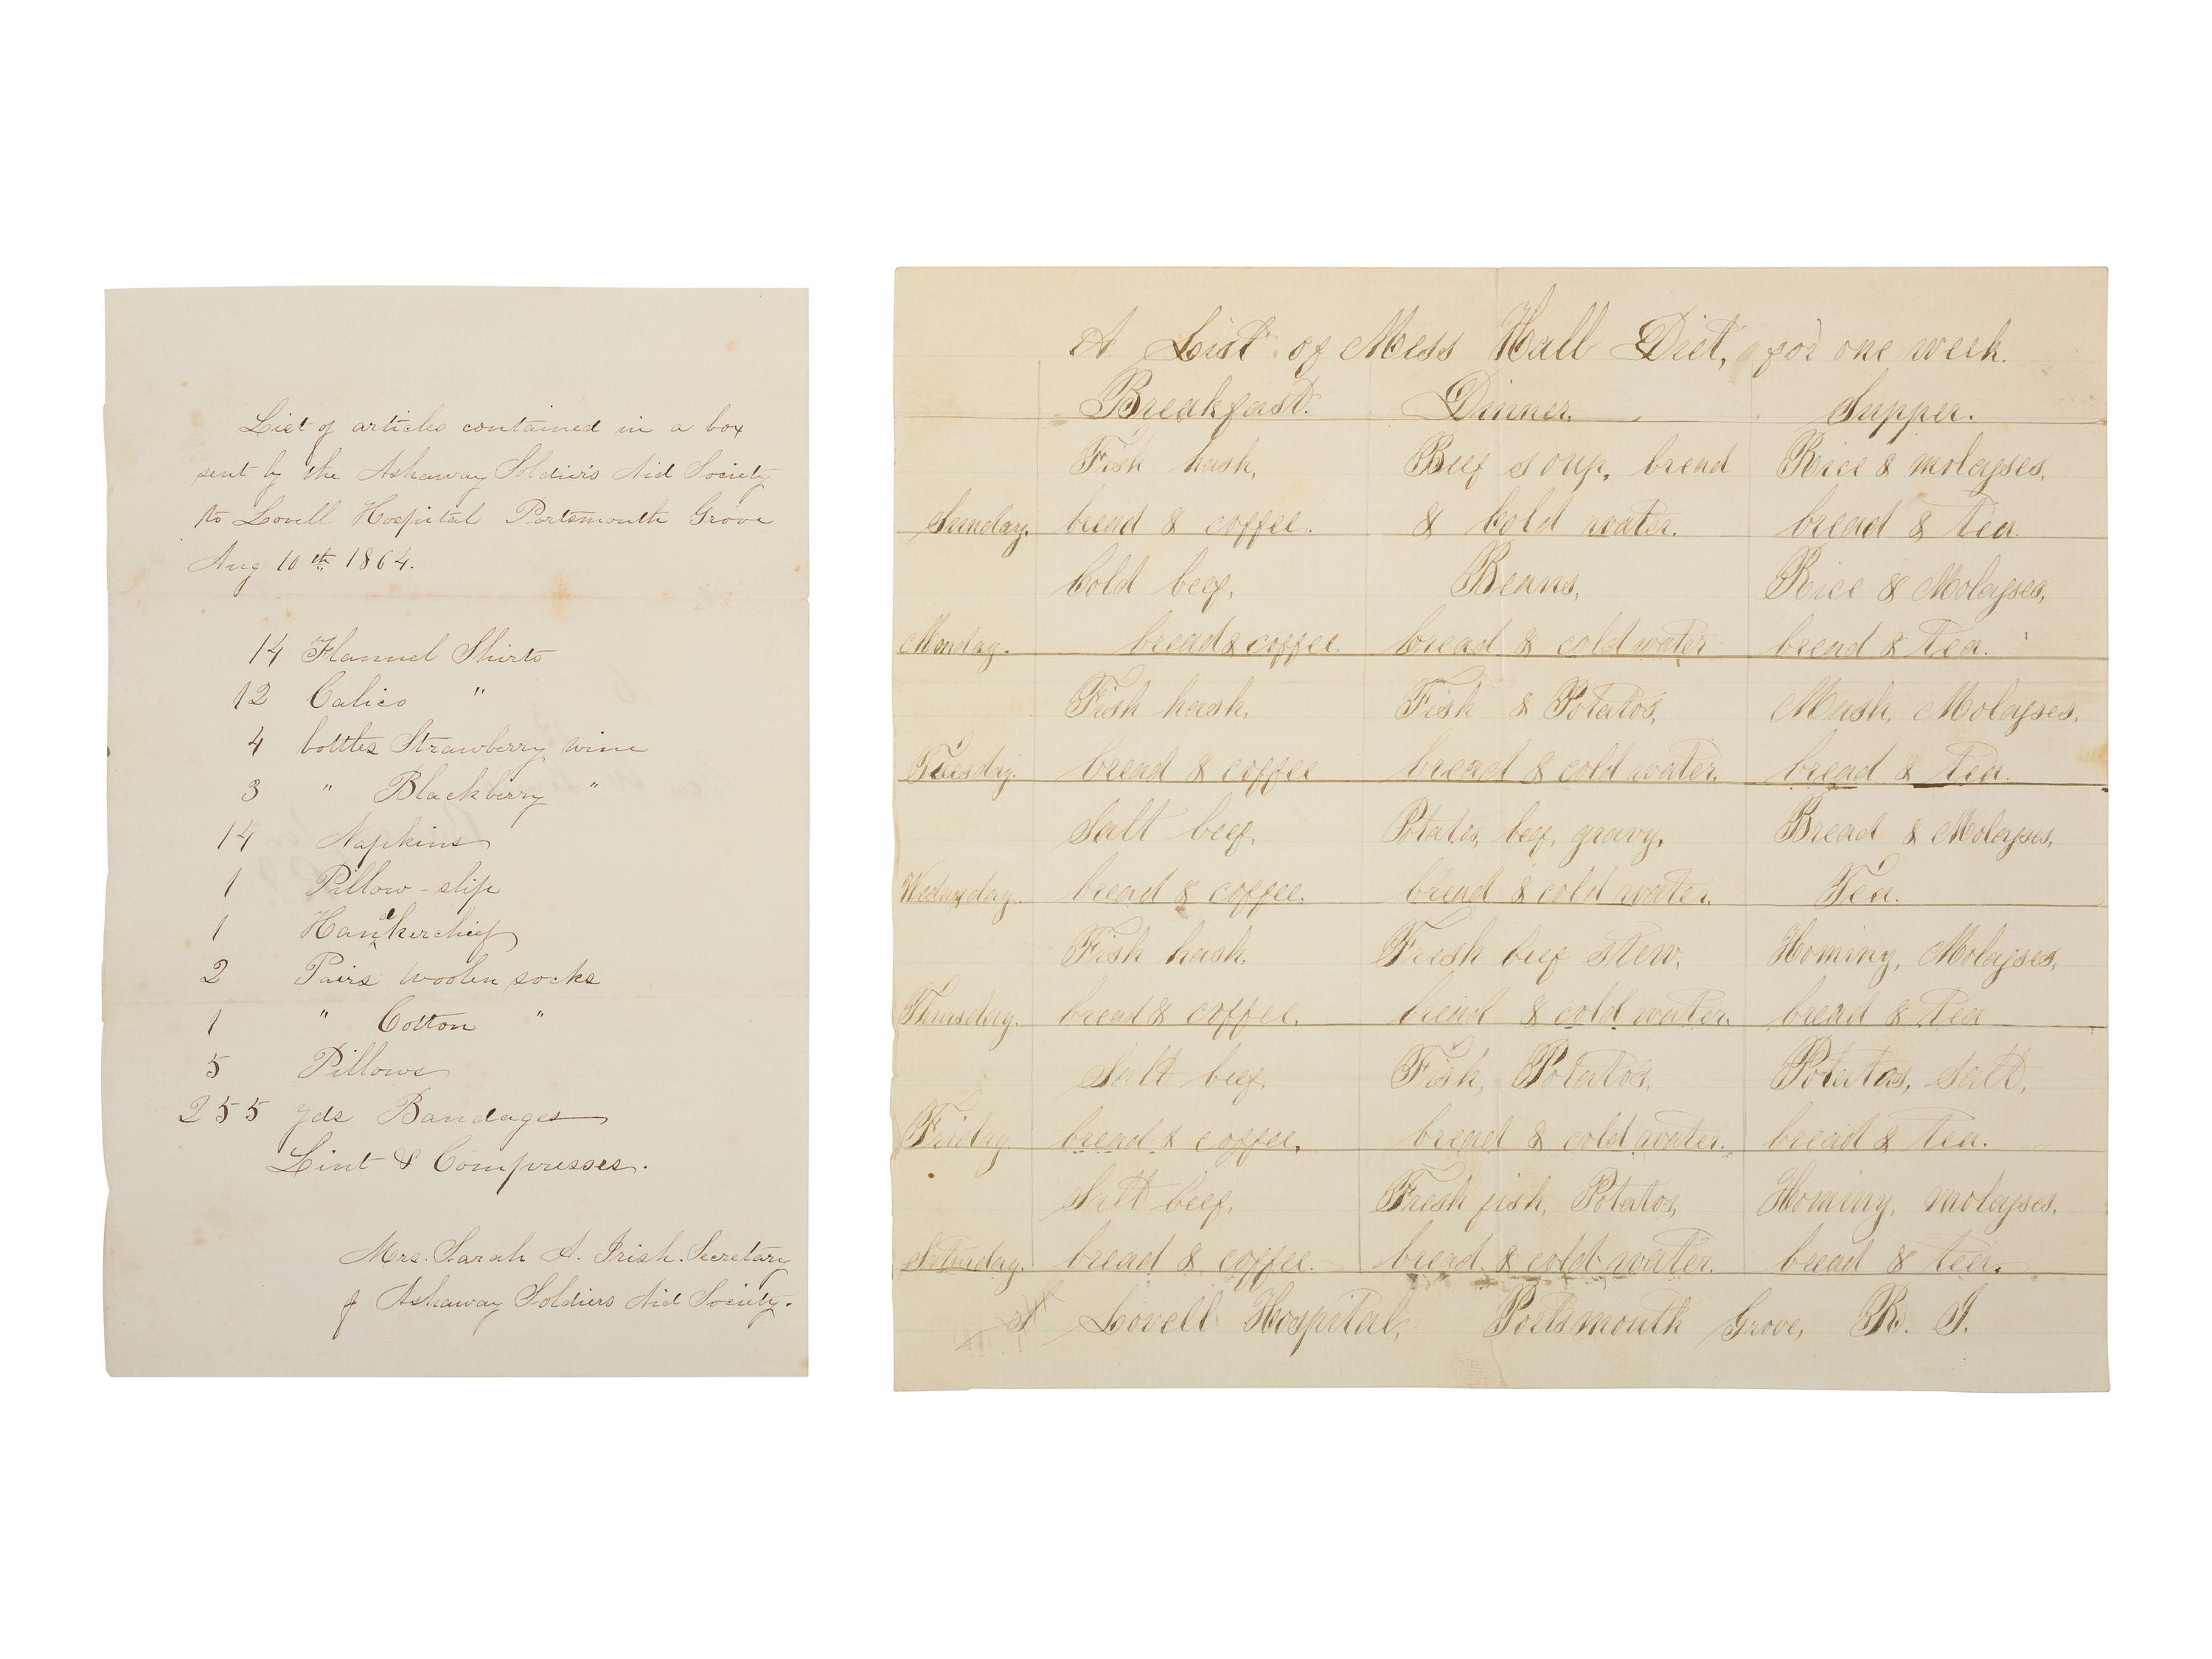 List of articles contained in a box
sent by the Ashaway Soldier's Aid Society
to Lovell Hospital Portsmouth Grove
Aug 10th 1864.
14 Flannel Shirts
12 Calico "
4 bottles Strawberry wine
3 " Blackberry "
14 Napkins
1 Pillow-slip
1 Handkerchief
2 Pairs woolen socks
1 " Cotton "
5 Pillows
255 yds Bandages
Lint & Compresses.
Mrs. Sarah A. Irish. Secretary
of Ashaway Soldiers Aid Society.
A List of Mess Hall Diet, for one week.
Breakfast. Dinner. Supper.
Fish hash, Beef soup, bread Rice & molasses,
Sunday. bread & coffee. & Cold water. bread & tea.
Cold beef, Beans, Rice & Molasses,
Monday. bread & coffee. bread & cold water bread & tea.
Fish hash, Fish & Potatos, Mush, Molasses,
Tuesday. bread & coffee bread & cold water. bread & tea.
Salt beef, Potatos, beef, gravy, Bread & Molasses,
Wednesday. bread & coffee. bread & cold water. Tea.
Fish hash. Fresh beef stew, Hominy, Molasses,
Thursday. bread & coffee. bread & cold water. bread & tea
Salt beef, Fish, Potatos, Potatos, Salt,
Friday. bread & coffee, bread & cold water. bread & tea.
Salt beef, Fresh fish, Potatos, Hominy, molasses,
Saturday. bread & coffee. bread & cold water. bread & tea.
Lovell Hospital, Portsmouth Grove, R. I.